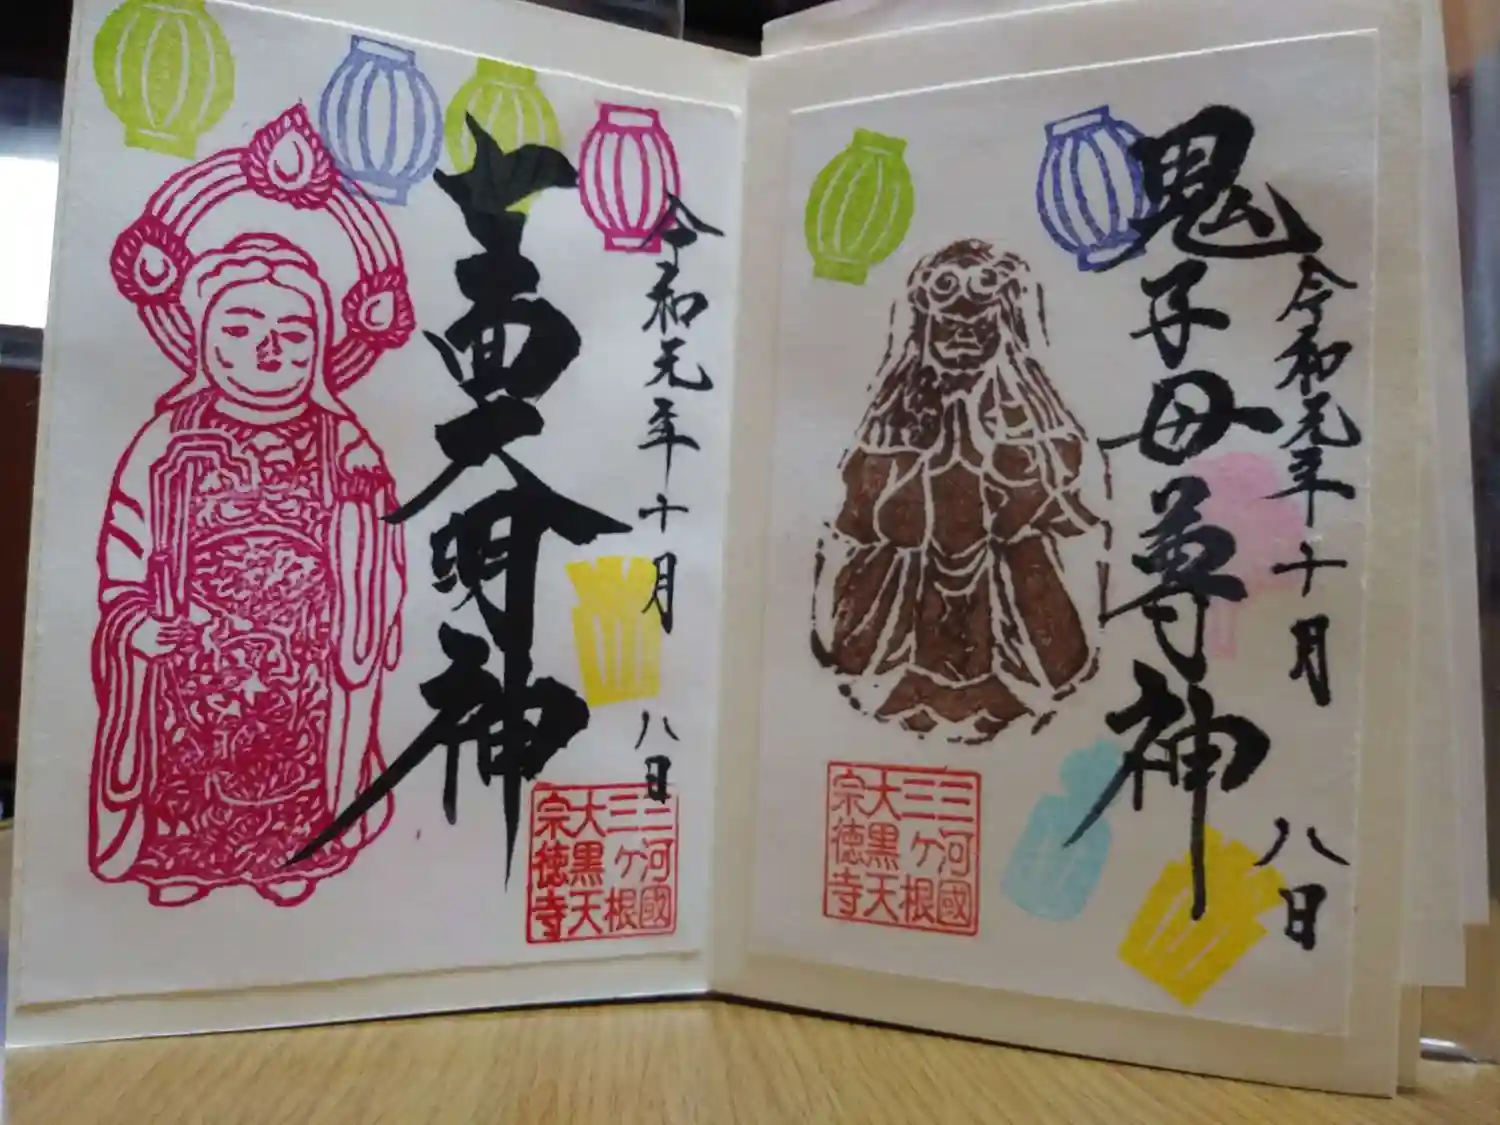 令和元年十月八日
鬼子母尊神
三河國
三ヶ根
大黒天
宗徳寺
令和元年十月八日
大明神
三河國
三ヶ根
大黒天
宗徳寺